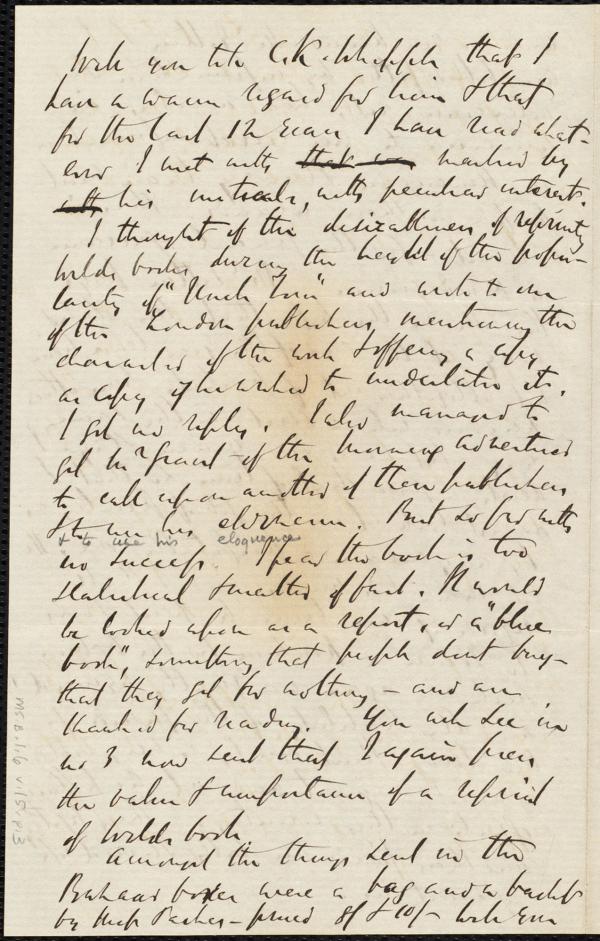 Will you tell C.K. Whipple that I
have a warm regard for him & that
for the last 12 years I have read what-
ever I met with that was marked by
with his initials, with peculiar interest.
I thought of the desirableness of reprinting
Welds book during the height of the popu-
larity of "Uncle Tom" and wrote to one
of the London publishers, mentioning the
character of the work & offering a copy
as copy if he wished to undertake it.
I got no reply. I also managed to
get Mr Grant - of the Morning Advertiser
to call upon another of these publishers
& to use his eloquence. But so far with
& to use his eloquence
no success. I fear the book is too
statistical & matter of fact. It would
be looked upon as a report, or a "blue
book", something that people dont buy -
that they get for nothing - and are
thanked for reading. You will see in
no 3 now sent that I again press
the value & importance of a reprint
of Welds book
Amongst the things sent in the
boxes were a bag and a basket
by - priced 8/ & 10/- Will you
Ms.B.1.6 v.15 p3